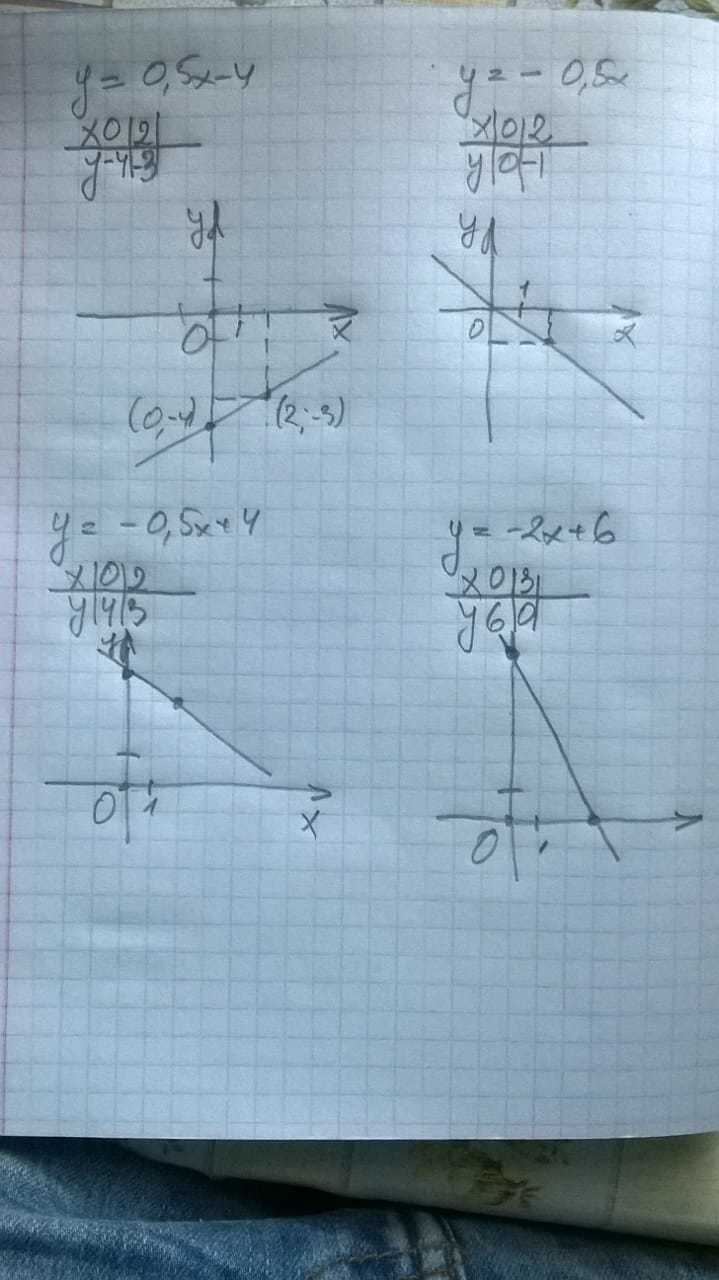 y = 0,5x-4
x 0 | 2 |
y -4 | -3
y
0 1 x
(0,-4) (2,-3)
y = - 0,5x
x | 0 | 2
y | 0 | -1
y
1
0 x
y = -0,5x+4
x | 0 | 2
y | 4 | 3
y
0 1
x
y = -2x+6
x 0 | 3 |
y 6 | 0 |
0 1